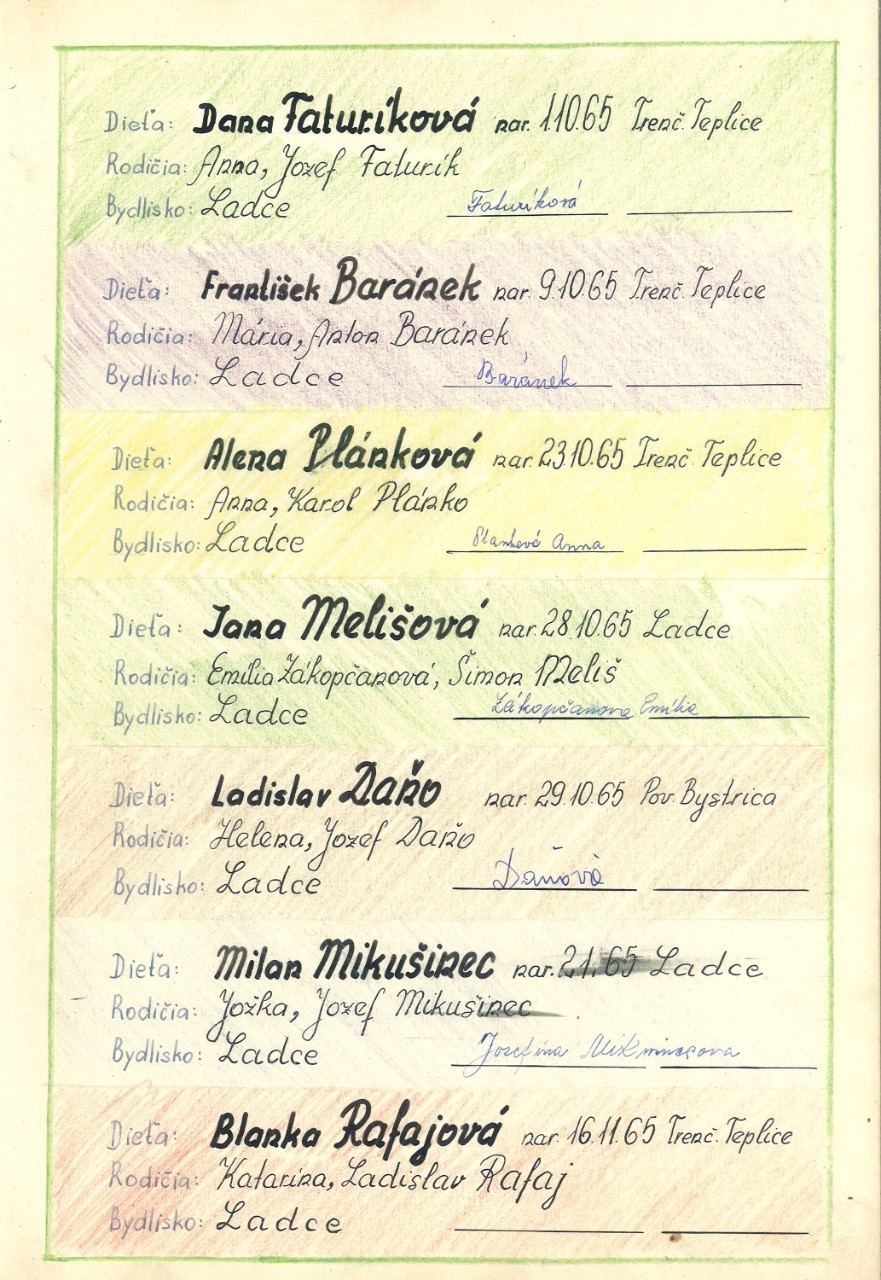 Dieťa: Dana Faturíková nar. 1.10.65 Trenč. Teplice
Rodičia: Anna, Jozef Faturík
Bydlisko: Ladce Faturíková
Dieťa: František Baránek nar. 9.10.65 Trenč. Teplice
Rodičia: Mária, Anton Baránek
Bydlisko: Ladce Baránek
Dieťa: Alena Plánková nar. 23.10.65 Trenč. Teplice
Rodičia: Anna, Karol Plánko
Bydlisko: Ladce Planková Anna
Dieťa: Jana Melišová nar. 28.10.65 Ladce
Rodičia: Emília Zákopčanová, Šimon Meliš
Bydlisko: Ladce Zákopčanova Emília
Dieťa: Ladislav Daňo nar. 29.10.65 Pov. Bystrica
Rodičia: Helena, Jozef Daňo
Bydlisko: Ladce Daňová
Dieťa: Milan Mikušinec nar. 65 Ladce
Rodičia: Jožka, Jozef Mikušinec
Bydlisko: Ladce Josefina
Dieťa: Blanka Rafajová nar. 16.11.65 Trenč. Teplice
Rodičia: Katarína, Ladislav Rafaj
Bydlisko: Ladce